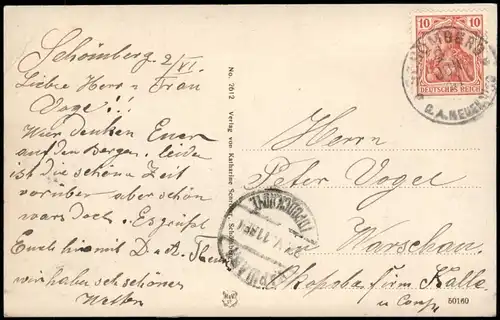 Schömberg 2/VI.
Liebe Herr u Frau
Vogel!!
Wir denken Euer
auf den Bergen, leider
ist die schöne Zeit
vorüber aber schön
wars doch. Es grüßt
Euch hiermit D. u A.
wir haben sch schönes
Wetter
No. 7612 Verlag von Katharine
10 10
DEUTSCHES REICH
SCHÖMBERG
O.A. NEUENBÜRG
Herrn
Peter Vogel
in Warschau
Skopoba firm. Kalla
u Comp
50160